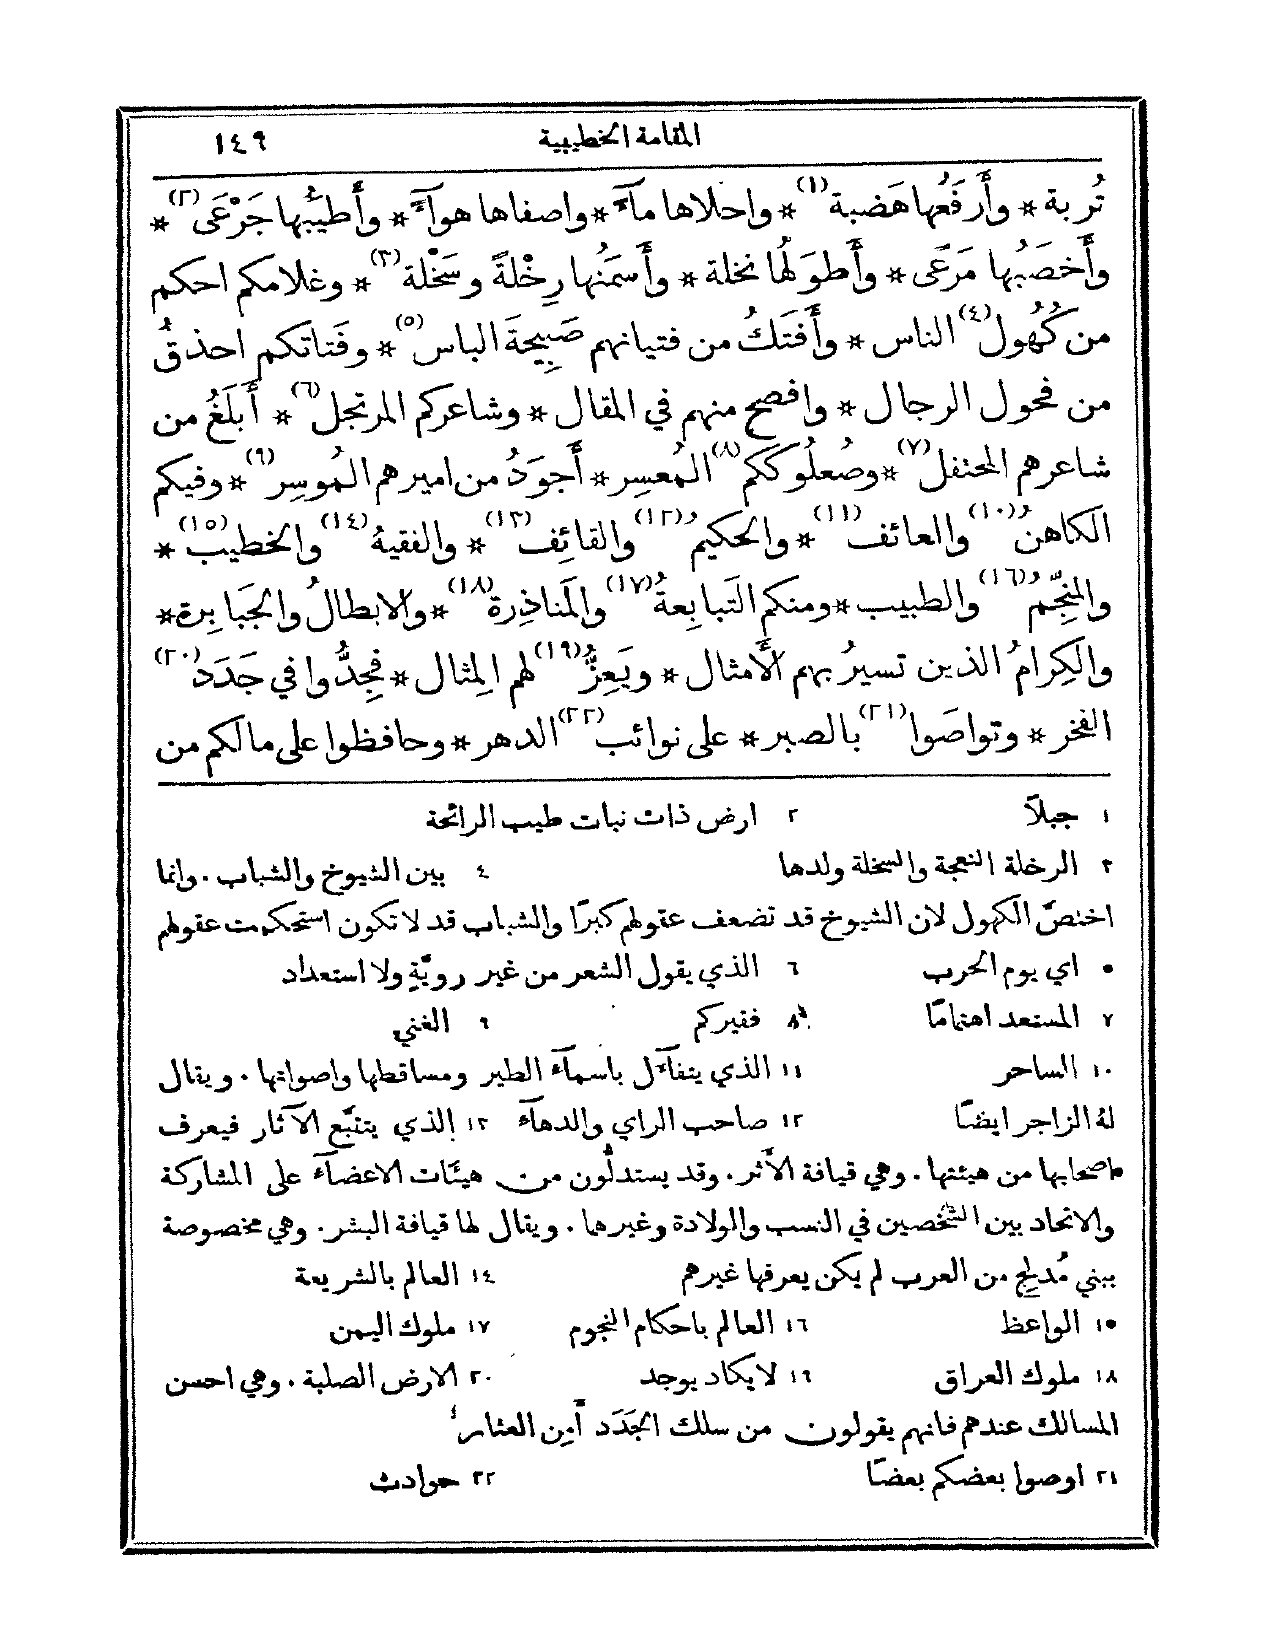 المقامة الخطيبية ١٤٩
تُربة * وأَرفَعُها هَضبة(١) * واحلاها مآءً * واصفاها هوآءً * وأَطيَبُها جَرْعَى(٢) *
وأَخصَبُها مَرعَى * وأَطوَلُها نخلة * وأَسمَنُها رِخْلةً وسَخْلة(٣) * وغلامكم احكم
من كُهُول(٤) الناس * وأَفتَكُ من فتيانهم صَبِيحةَ الباس(٥) * وفَتاتكم احذقُ
من فحول الرجال * وافصحُ منهم في المقال * وشاعركم المرتجل(٦) * أَبلَغُ من
شاعرهم المحتفل(٧) * وصُعلُوككم(٨) المُعسِر * أَجوَدُ من اميرهم المُوسِر(٩) * وفيكم
الكاهنُ(١٠) والعائف(١١) * والحكيمُ(١٢) والقائِف(١٣) * والفقيهُ(١٤) والخطيب(١٥) *
والمنجّمُ(١٦) والطبيب * ومنكم التَبابِعةُ(١٧) والمَناذِرة(١٨) * والابطالُ والجَبابِرة *
والكِرامُ الذين تسيرُ بهم الأَمثال * ويَعِزُّ(١٩) لهم المِثال * فجِدُّوا في جَدَد(٢٠)
الفخر * وتواصَوا(٢١) بالصبر * على نوائب(٢٢) الدهر * وحافظوا على ما لكم من
١ جبلًا ٢ ارض ذات نبات طيب الرائحة
٣ الرخلة النعجة والسخلة ولدها ٤ بين الشيوخ والشباب . وانما
اختصّ الكهول لان الشيوخ قد تضعف عقولهم كبرًا والشباب قد لا تكون استحكمت عقولهم
٥ اي يوم الحرب ٦ الذي يقول الشعر من غير رويّةٍ ولا استعداد
٧ المستعد اهتمامًا ٨ فقيركم ٩ الغني
١٠ الساحر ١١ الذي يتفآءل باسمآء الطير ومساقطها واصواتها . ويقال
لهُ الزاجر ايضًا ١٢ صاحب الراي والدهآء ١٣ الذي يتتبّع الآثار فيعرف
اصحابها من هيئتها . وهي قيافة الأَثر . وقد يستدلُّون من هيئات الاعضآء على المشاركة
والاتحاد بين الشخصين في النسب والولادة وغيرها . ويقال لها قيافة البشر . وهي مخصوصة
ببني مُدلج من العرب لم يكن يعرفها غيرهم ١٤ العالم بالشريعة
١٥ الواعظ ١٦ العالم باحكام النجوم ١٧ ملوك اليمن
١٨ ملوك العراق ١٩ لا يكاد يوجد ٢٠ الارض الصلبة . وهي احسن
المسالك عندهم فانهم يقولون من سلك الجَدَد أَمِن العثار
٢١ اوصوا بعضكم بعضًا ٢٢ حوادث